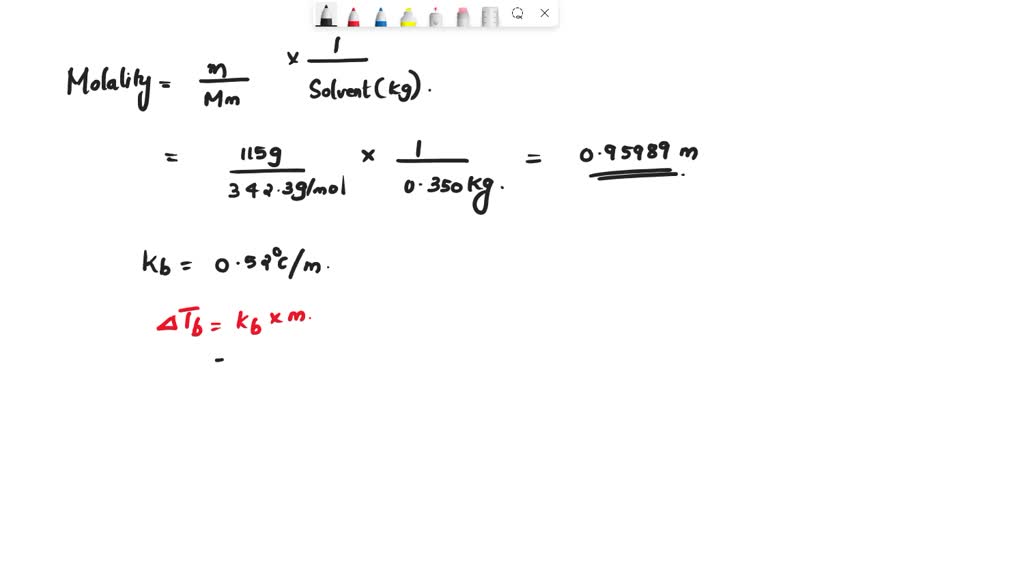 Molality = m/Mm × 1/Solvent(kg).
= 115g/342.3g/mol × 1/0.350kg. = 0.95989 m.
Kb = 0.52°c/m.
ΔTb = Kb × m.
=